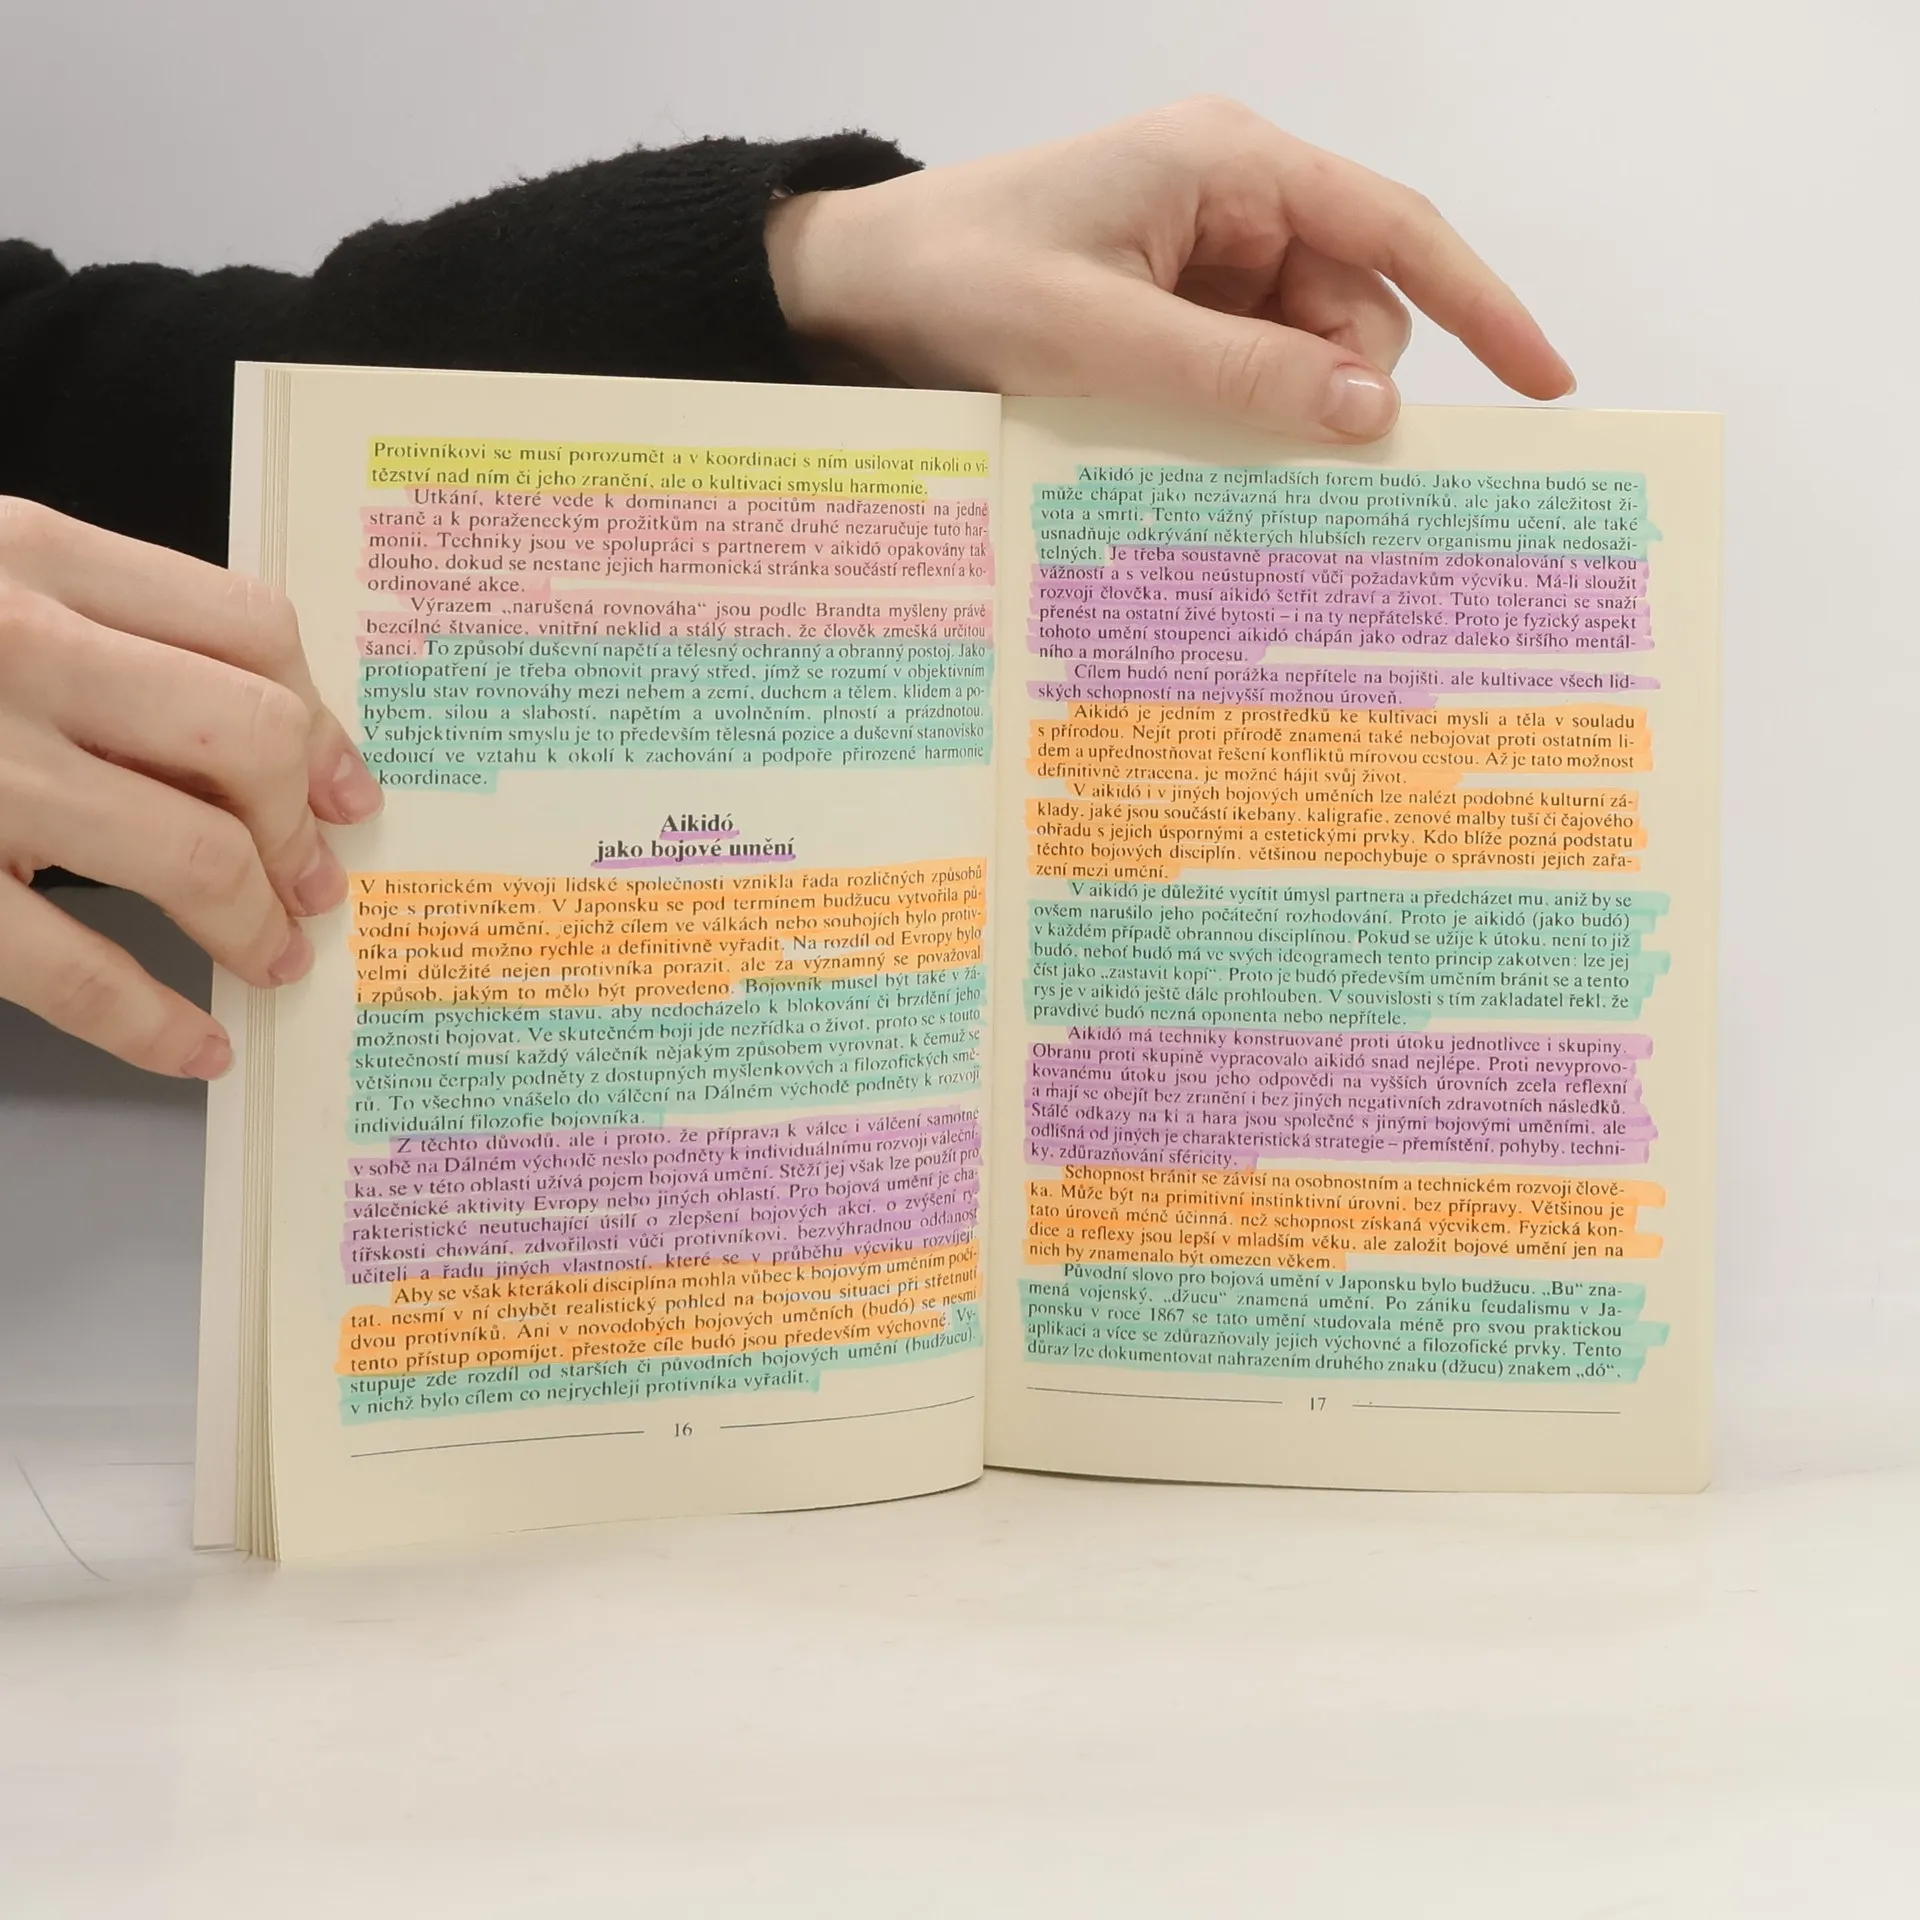 Protivníkovi se musí porozumět a v koordinaci s ním usilovat nikoli o ví-
tězství nad ním či jeho zranění, ale o kultivaci smyslu harmonie.
Utkání, které vede k dominanci a pocitům nadřazenosti na jedné
straně a k poraženeckým prožitkům na straně druhé nezaručuje tuto har-
monii. Techniky jsou ve spolupráci s partnerem v aikidó opakovány tak
dlouho, dokud se nestane jejich harmonická stránka součástí reflexní a ko-
ordinované akce.
Výrazem „narušená rovnováha“ jsou podle Brandta myšleny právě
bezcílné štvanice, vnitřní neklid a stálý strach, že člověk zmešká určitou
šanci. To způsobí duševní napětí a tělesný ochranný a obranný postoj. Jako
protiopatření je třeba obnovit pravý střed, jímž se rozumí v objektivním
smyslu stav rovnováhy mezi nebem a zemí, duchem a tělem, klidem a po-
hybem, silou a slabostí, napětím a uvolněním, plností a prázdnotou.
V subjektivním smyslu je to především tělesná pozice a duševní stanovisko
vedoucí ve vztahu k okolí k zachování a podpoře přirozené harmonie
koordinace.
Aikidó
jako bojové umění
V historickém vývoji lidské společnosti vznikla řada rozličných způsobů
boje s protivníkem. V Japonsku se pod termínem budžucu vytvořila pů-
vodní bojová umění, jejichž cílem ve válkách nebo soubojích bylo protiv-
níka pokud možno rychle a definitivně vyřadit. Na rozdíl od Evropy bylo
velmi důležité nejen protivníka porazit, ale za významný se považoval
i způsob, jakým to mělo být provedeno. Bojovník musel být také v žá-
doucím psychickém stavu, aby nedocházelo k blokování či brzdění jeho
možnosti bojovat. Ve skutečném boji jde nezřídka o život, proto se s touto
skutečností musí každý válečník nějakým způsobem vyrovnat, k čemuž se
většinou čerpaly podněty z dostupných myšlenkových a filozofických smě-
rů. To všechno vnášelo do válčení na Dálném východě podněty k rozvoji
individuální filozofie bojovníka.
Z těchto důvodů, ale i proto, že příprava k válce i válčení samotné
v sobě na Dálném východě neslo podněty k individuálnímu rozvoji váleční-
ka, se v této oblasti užívá pojem bojová umění. Stěží jej však lze použít pro
válečnické aktivity Evropy nebo jiných oblastí. Pro bojová umění je cha-
rakteristické neutuchající úsilí o zlepšení bojových akcí, o zvýšení ry-
tířskosti chování, zdvořilosti vůči protivníkovi, bezvýhradnou oddanost
učiteli a řadu jiných vlastností, které se v průběhu výcviku rozvíjejí.
Aby se však kterákoli disciplína mohla vůbec k bojovým uměním počí-
tat, nesmí v ní chybět realistický pohled na bojovou situaci při střetnutí
dvou protivníků. Ani v novodobých bojových uměních (budó) se nesmí
tento přístup opomíjet, přestože cíle budó jsou především výchovné. Vy-
stupuje zde rozdíl od starších či původních bojových umění (budžucu),
v nichž bylo cílem co nejrychleji protivníka vyřadit.
16
Aikidó je jedna z nejmladších forem budó. Jako všechna budó se ne-
může chápat jako nezávazná hra dvou protivníků, ale jako záležitost ži-
vota a smrti. Tento vážný přístup napomáhá rychlejšímu učení, ale také
usnadňuje odkrývání některých hlubších rezerv organismu jinak nedosaži-
telných. Je třeba soustavně pracovat na vlastním zdokonalování s velkou
vážností a s velkou neústupností vůči požadavkům výcviku. Má-li sloužit
rozvoji člověka, musí aikidó šetřit zdraví a život. Tuto toleranci se snaží
přenést na ostatní živé bytosti – i na ty nepřátelské. Proto je fyzický aspekt
tohoto umění stoupenci aikidó chápán jako odraz daleko širšího mentál-
ního a morálního procesu.
Cílem budó není porážka nepřítele na bojišti, ale kultivace všech lid-
ských schopností na nejvyšší možnou úroveň.
Aikidó je jedním z prostředků ke kultivaci mysli a těla v souladu
s přírodou. Nejít proti přírodě znamená také nebojovat proti ostatním li-
dem a upřednostňovat řešení konfliktů mírovou cestou. Až je tato možnost
definitivně ztracena, je možné hájit svůj život.
V aikidó i v jiných bojových uměních lze nalézt podobné kulturní zá-
klady, jaké jsou součástí ikebany, kaligrafie, zenové malby tuší či čajového
obřadu s jejich úspornými a estetickými prvky. Kdo blíže pozná podstatu
těchto bojových disciplín, většinou nepochybuje o správnosti jejich zařa-
zení mezi umění.
V aikidó je důležité vycítit úmysl partnera a předcházet mu, aniž by se
ovšem narušilo jeho počáteční rozhodování. Proto je aikidó (jako budó)
v každém případě obrannou disciplínou. Pokud se užije k útoku, není to již
budó, neboť budó má ve svých ideogramech tento princip zakotven: lze jej
číst jako „zastavit kopí“. Proto je budó především uměním bránit se a tento
rys je v aikidó ještě dále prohlouben. V souvislosti s tím zakladatel řekl, že
pravdivé budó nezná oponenta nebo nepřítele.
Aikidó má techniky konstruované proti útoku jednotlivce i skupiny.
Obranu proti skupině vypracovalo aikidó snad nejlépe. Proti nevyprovo-
kovanému útoku jsou jeho odpovědi na vyšších úrovních zcela reflexní
a mají se obejít bez zranění i bez jiných negativních zdravotních následků.
Stálé odkazy na ki a hara jsou společné s jinými bojovými uměními, ale
odlišná od jiných je charakteristická strategie – přemístění, pohyby, techni-
ky, zdůrazňování sféricity.
Schopnost bránit se závisí na osobnostním a technickém rozvoji člově-
ka. Může být na primitivní instinktivní úrovni, bez přípravy. Většinou je
tato úroveň méně účinná, než schopnost získaná výcvikem. Fyzická kon-
dice a reflexy jsou lepší v mladším věku, ale založit bojové umění jen na
nich by znamenalo být omezen věkem.
Původní slovo pro bojová umění v Japonsku bylo budžucu. „Bu“ zna-
mená vojenský, „džucu“ znamená umění. Po zániku feudalismu v Ja-
ponsku v roce 1867 se tato umění studovala méně pro svou praktickou
aplikaci a více se zdůrazňovaly jejich výchovné a filozofické prvky. Tento
důraz lze dokumentovat nahrazením druhého znaku (džucu) znakem „dó“.
17